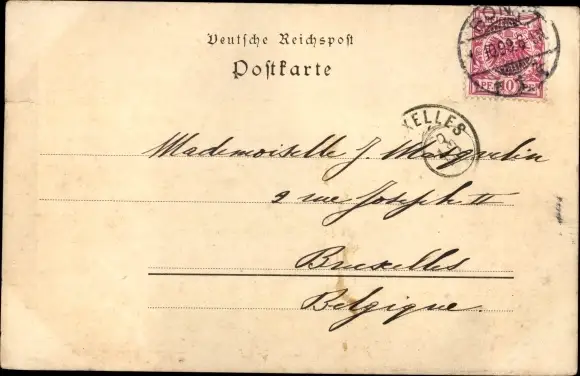 Deutsche Reichspost
Postkarte
BONN
10
XELLES
Mademoiselle J. Masquelin
2 rue Joseph II
Bruxelles
Belgique.